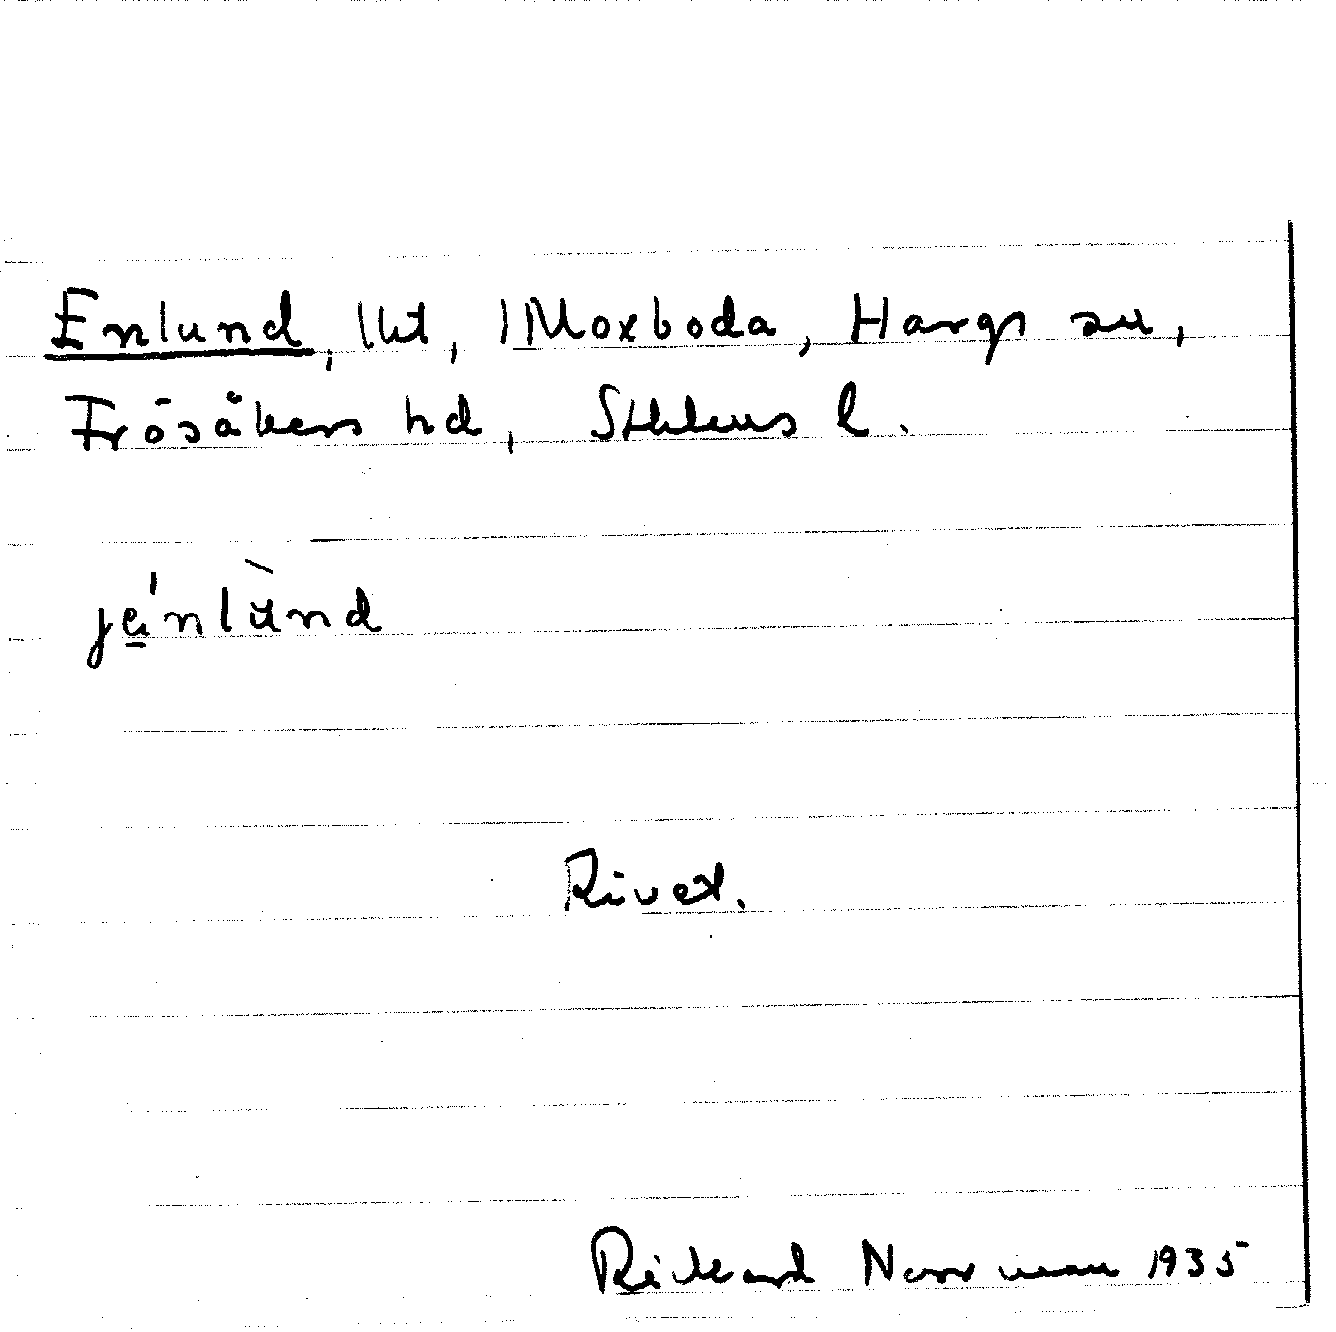 Enlund, lht, Moxboda, Hargs sn,
Frösåkers hd, Sthlms l.
Rivet.
Rickard Norrman 1935